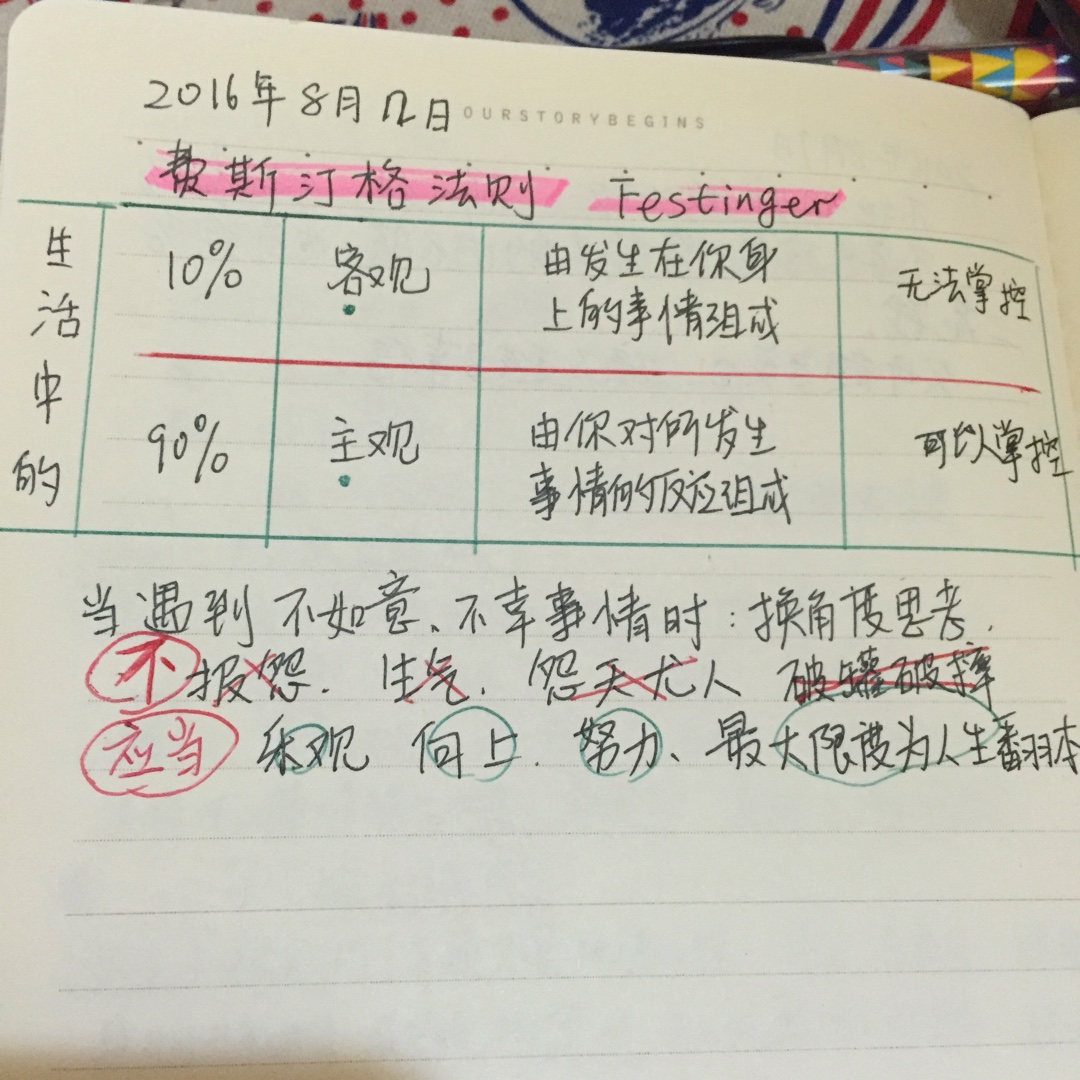 2016年8月12日 OURSTORYBEGINS
费斯汀格法则 Festinger
生活中的
10% 客观 由发生在你身 无法掌控
上的事情组成
90% 主观 由你对所发生 可以掌控
事情的反应组成
当遇到不如意、不幸事情时：换角度思考.
不报怨. 生气. 怨天尤人 破罐破摔
应当 乐观 向上. 努力、最大限度为人生翻本